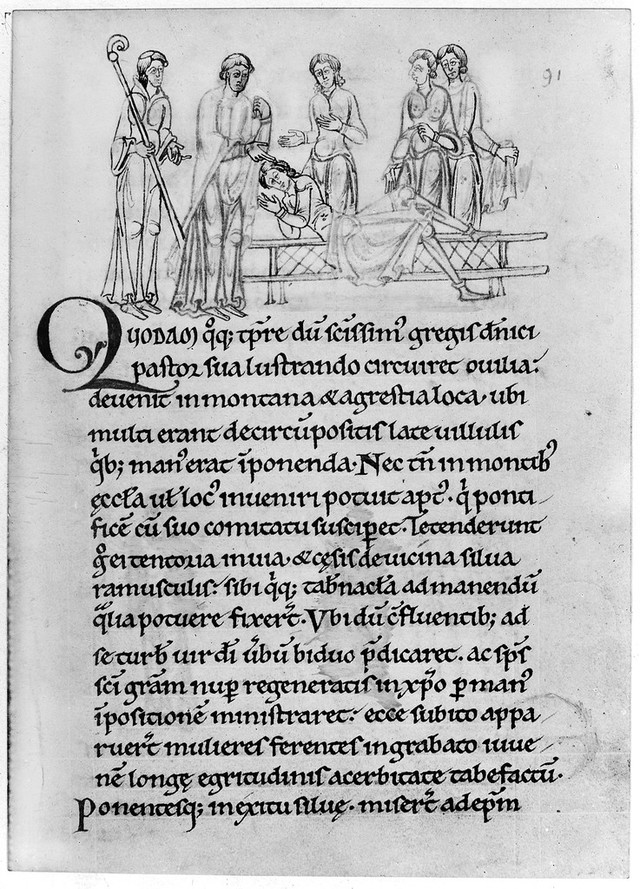 91
QUODAM q̊q; tp̄re dū scīssim᷒ gregis dn̄ici
pastor sua lustrando circuiret ovilia:
devenit in montana & agrestia loca. ubi
multi erant de circūpositis late villulis
q̄b; man᷒ erat īponenda. Nec tn̄ in montib᷒
ęccła uł loc᷒ inveniri potuit apt᷒. q̇ ponti-
ficē cū suo comitatu susciꝑet. Tetenderunt
g̊ ei tentoria in via. & cęsis de vicina silva
ramusculis: sibi q̇q; tab̄nacła ad manendū
q̄lia potuere fixer̄t. Ubi dū c̄fluentib; ad
se turb̄ vir dī ūbū biduo p̄dicaret. ac sp̄s
scī gr̄am nuꝑ regeneratis in xp̄o ꝑ man᷒
īpositionē ministraret: ecce subito appa-
ruer̄t mulieres ferentes in grabato iuve-
nē longę egritudinis acerbitate tabefactū.
Ponentesq; in exitu silvę. miser̄t ad ep̄m